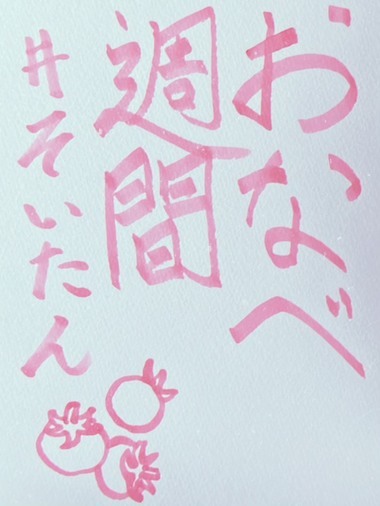 おなべ
週間
#そいたん